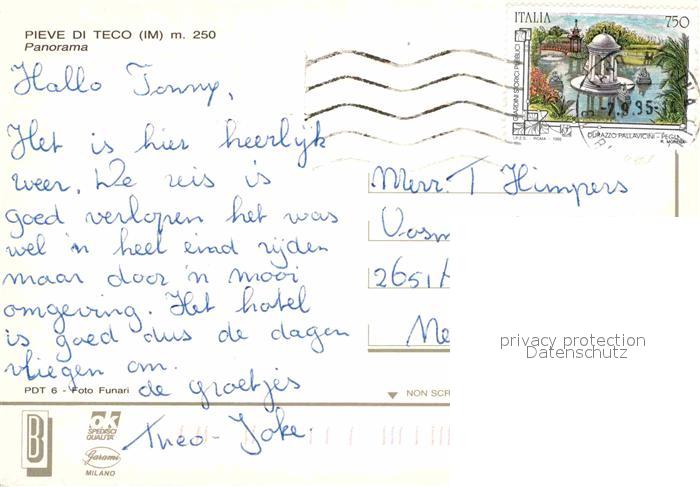 PIEVE DI TECO (IM) m. 250
Panorama
Hallo Tonny,
Het is hier heerlijk
weer. De reis is
goed verlopen het was
wel 'n heel eind rijden
maar door 'n mooi
omgeving. Het hotel
is goed dus de dagen
vliegen om.
de groetjes
Theo - Joke.
PDT 6 - Foto Funari
NON SCR
B
ok
SPEDISCI
QUALITA'
Garami
MILANO
ITALIA 750
GIARDINI STORICI PUBBLICI
DURAZZO PALLAVICINI - PEGLI
I.P.Z.S. ROMA 1995
-7.9.95-
Merr. T Himpers
Vosm
2651A
Me
privacy protection
Datenschutz